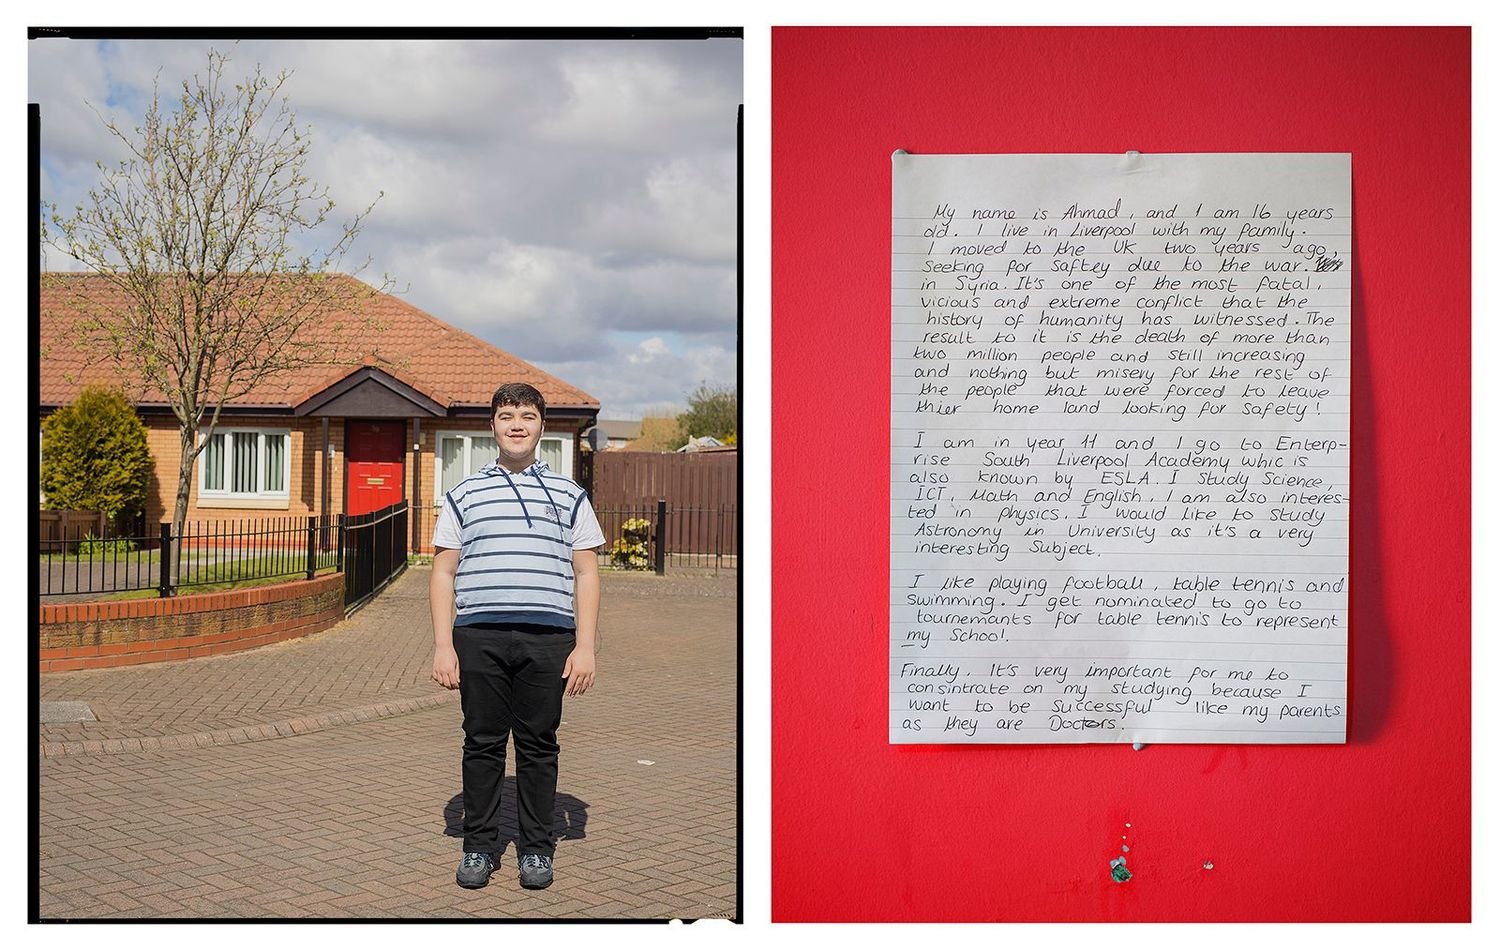 My name is Ahmad, and I am 16 years
old. I live in Liverpool with my family.
I moved to the UK two years ago,
seeking for saftey due to the war.
in Syria. It's one of the most fatal,
vicious and extreme conflict that the
history of humanity has witnessed. The
result to it is the death of more than
two million people and still increasing
and nothing but misery for the rest of
the people that were forced to leave
thier home land looking for safety!
I am in year 11 and I go to Enterp-
rise South Liverpool Academy whic is
also known by ESLA. I study Science,
ICT, Math and English. I am also interes-
ted in physics. I would like to study
Astronomy in University as it's a very
interesting Subject.
I like playing football, table tennis and
swimming. I get nominated to go to
tournemants for table tennis to represent
my School.
Finally. It's very important for me to
consintrate on my studying because I
want to be successful like my parents
as they are Doctors.